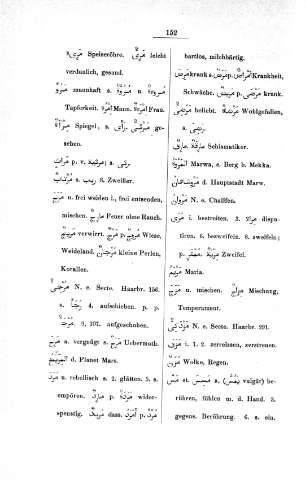 152
مَرِىء Speiseröhre. مَرِىء leicht
verdaulich, gesund.
مُرُوّة n. mannhaft s. مُرُوّة n.
Tapferkeit. اِمْرَأ Mann. اِمْرَأة Frau.
Spiegel, s. رأى ge-
sehen.
s. رثى v. p.
s. ريب 8. Zweifler.
مرج n. frei weiden l, frei entsenden,
mischen. مارج Feuer ohne Rauch.
verwirrt. مرج p. مرج Wiese,
Weideland. مرجان kleine Perlen,
Korallen.
N. e. Secte. Haarbr. 156.
s. رجأ 4. aufschieben. p. p.
9, 107. aufgeschoben.
مرح a. vergnügt s. مرح Uebermuth.
d. Planet Mars.
مرد u. rebellisch s. 2. glätten. 5. s.
empören. مارد p. wider-
spenstig. مريد dass. امرد p. مرد
bartlos, milchbärtig.
مرض krank s. مرض p. امراض Krankheit,
مريض p. مرضى krank.
beliebt. مرضاة Wohlgefallen,
s. رضى.
s. مرق. مارقة Schismatiker.
المروة Marwa, e. Berg b. Mekka.
d. Hauptstadt Marw.
مروان N. e. Chalifen.
مرى i. bestreiten. 3. مراء dispu-
tiren. 6. bezweifeln. 8. zweifeln;
مرية Zweifel.
مريم Maria.
مزج u. mischen. مزاج Mischung,
Temperament.
N. e. Secte. Haarbr. 291.
مزق i. 1. 2. zerreissen, zerstreuen.
مزن Wolke, Regen.
مسّ st. مسس a. (vulgär) be-
rühren, fühlen m. d. Hand. 3.
gegens. Berührung. 6. s. ein.